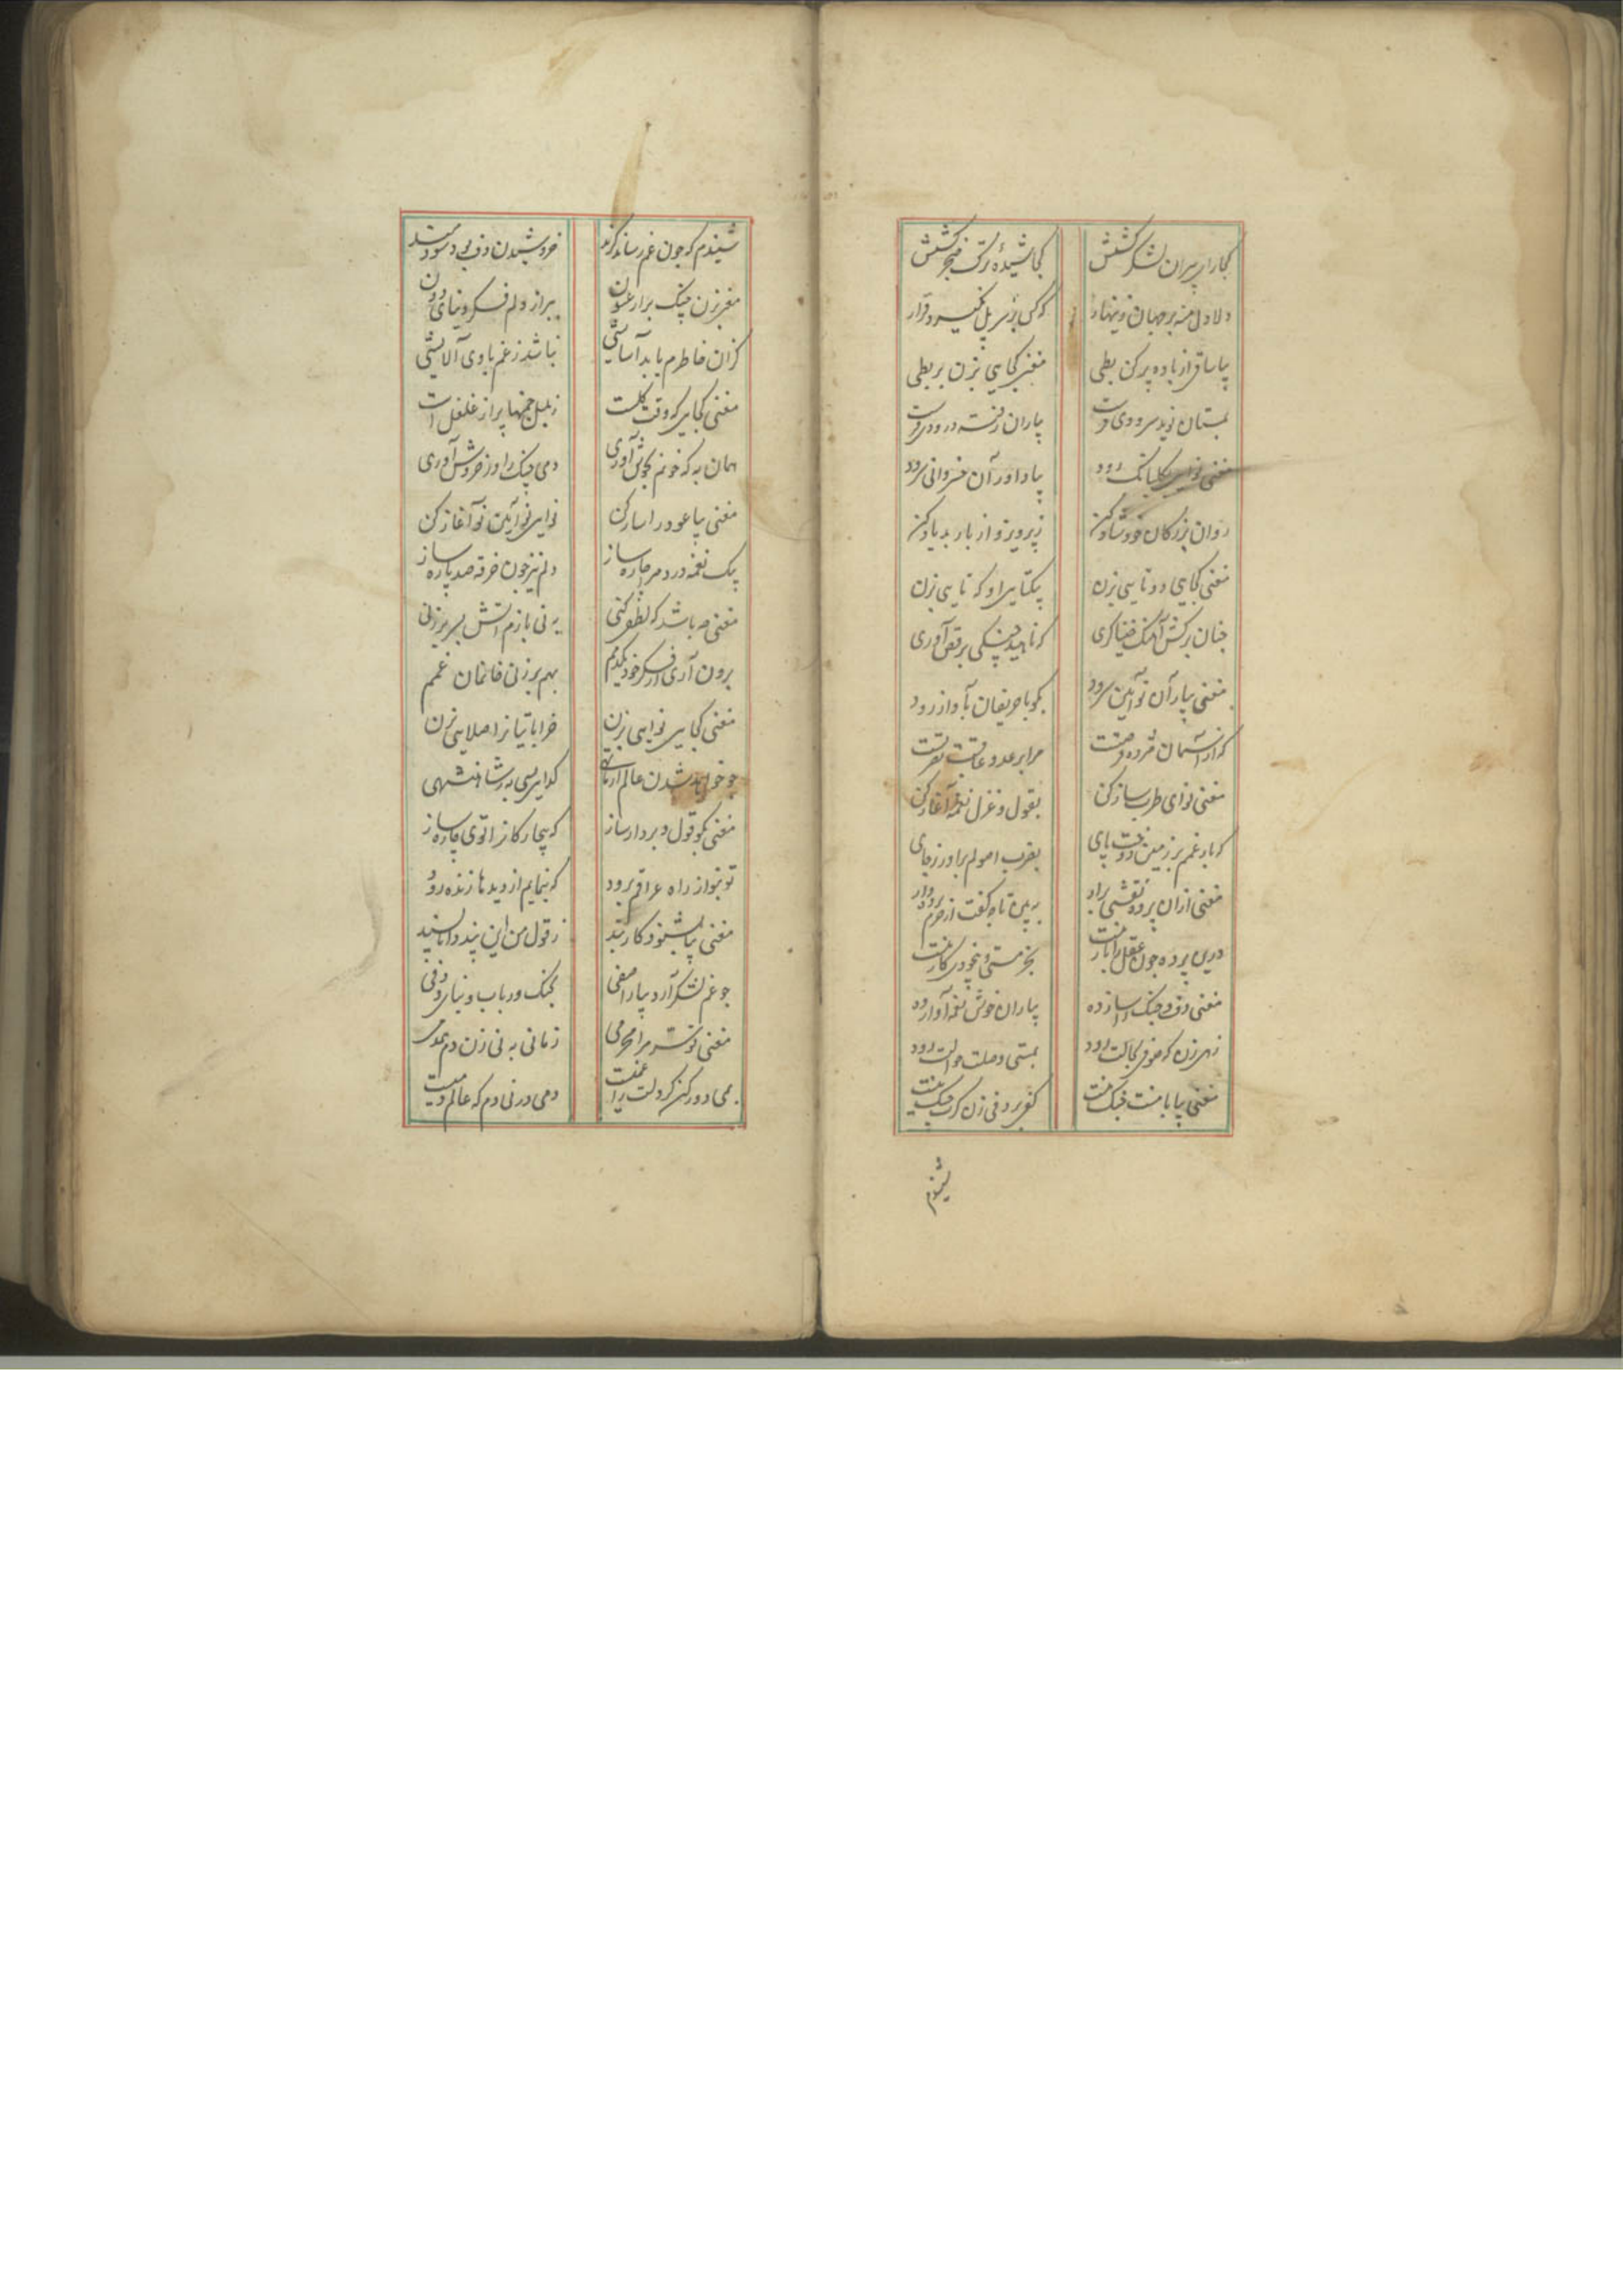 کجا رای پیران لشکر کشش کجا شیدهٔ ترک خنجر کشش
دلا دل منه بر جهان زینهار که کس بر سر پل نگیرد قرار
بیا ساقی از باده پر کن بطی مغنی کجایی بزن بربطی
بمستان نوید سرودی فرست بیاران رفته درودی فرست
مغنی نوایی بگلبانک رود بیاد اور آن خسروانی سرود
روان بزرکان خود شاد کن ز پرویز و از باربد یاد کن
مغنی کجایی دو تایی بزن بیکتایی او که تایی بزن
چنان برکش آهنک خنیاکری که ناهید چنکی برقص آوری
مغنی بیار آن نو آیین سرود بکو با حریفان بآواز رود
که از آسمان مژده نصرتست مرا بر عدو عاقبت فرصتست
مغنی نوای طرب ساز کن بقول و غزل نغمه آغاز کن
که بار غمم بر زمین دوخت پای بضرب اصولم براور ز جای
مغنی ازان پرده نقشی برار ببین تا چه کفت از حرم پرده دار
درین پرده چون عقل را بار نیست بجز مستی و بیخودی کار نیست
مغنی دف و چنک را ساز ده بیاران خوش نغمه آواز ده
رهی زن که صوفی بحالت رود بمستی وصلت حوالت رود
مغنی بیا با منت جنک نیست کفی بر دفی زن کرت چنک نیست
شنیدم
شنیدم که چون غم رساند کزند خروشیدن دف بود سودمند
مغنی بزن چنک بر ارغنون ببر از دلم فکر دنیای دون
کزان خاطرم یابد آسایشی نباشد ز غم با وی آلایشی
مغنی کجایی که وقت کلست ز بلبل چمنها پر از غلغلست
همان به که خونم بجوش آوری دمی چنک را در خروش آوری
مغنی بیا عود را ساز کن نوایی نو آیین نو آغاز کن
بیک نغمه درد مرا چاره ساز دلم نیز چون خرقه صد پاره ساز
مغنی چه باشد که لطفی کنی به نی بازم آتش بسر بر زنی
برون آری از فکر خود یکدمم بهم بر زنی خانمان غمم
مغنی کجایی نوایی بزن خراباتیانرا صلایی بزن
چو خواهد شدن عالم از ما تهی کدایی بسی به ز شاهنشهی
مغنی بکو قول و بردار ساز که بیچارکانرا توی چاره ساز
تو بنواز راه عراقم برود که بنمایم از دیدها زنده رود
مغنی بیا بشنو و کار بند ز قول من این پند دانا پسند
چو غم لشکر آرد بیارا صفی بچنک و رباب و بنای و دفی
مغنی تو سر مرا محرمی زمانی به نی زن دم همدمی
می دور کن کر دلت را غمست دمی در نی دم که عالم دمیست